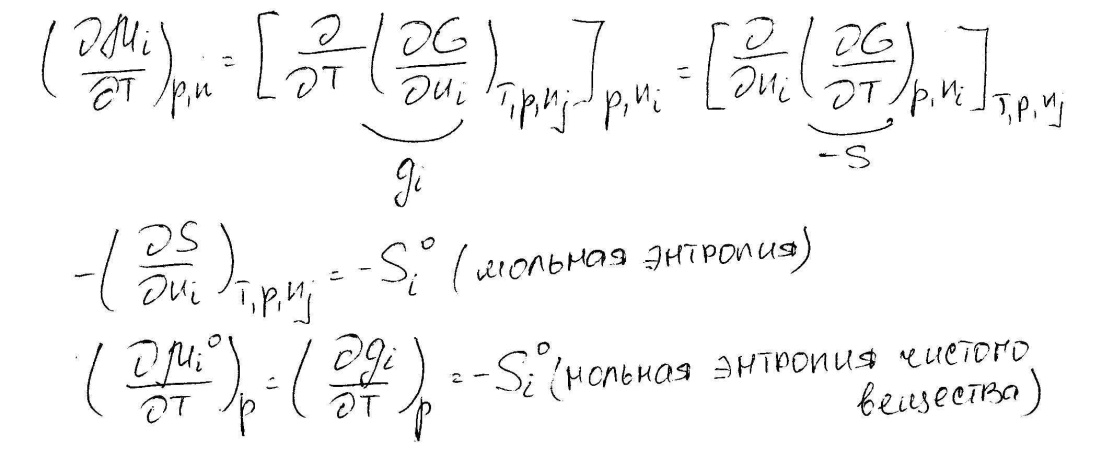 (∂μi/∂T)p,n = [∂/∂T (∂G/∂ni)T,p,nj]p,ni = [∂/∂ni (∂G/∂T)p,ni]T,p,nj
gi -S
-(∂S/∂ni)T,p,nj = -Si° (мольная энтропия)
(∂μi°/∂T)p = (∂gi/∂T)p = -Si° (мольная энтропия чистого
вещества)